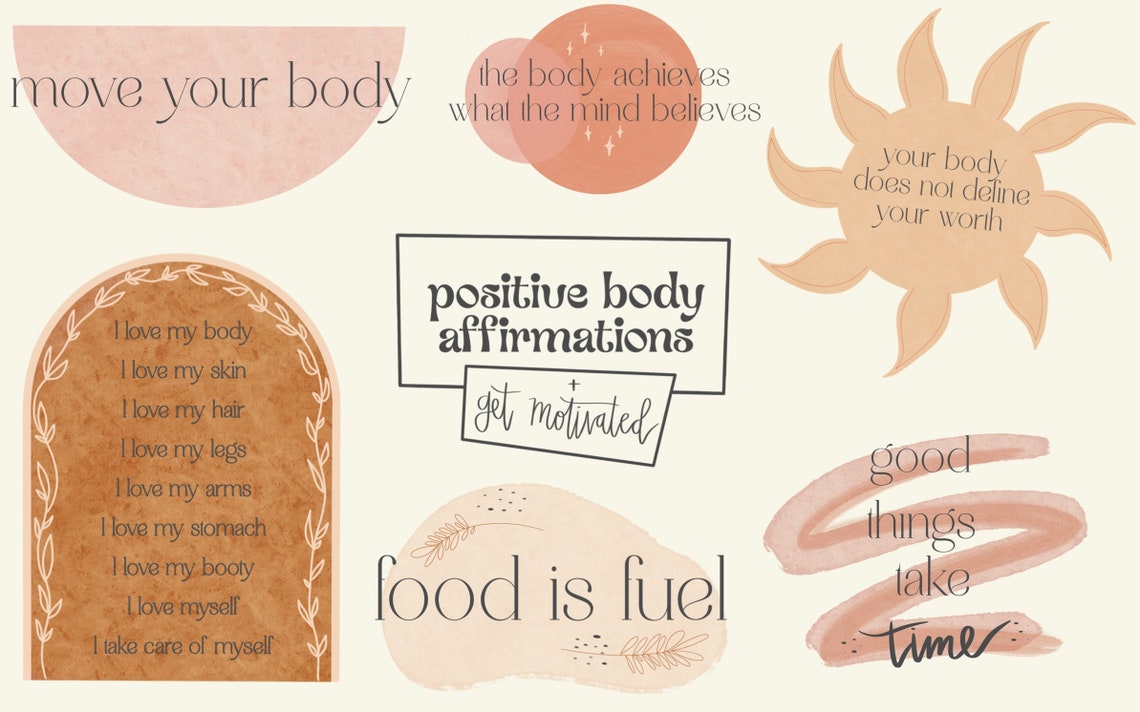 move your body
the body achieves
what the mind believes
your body
does not define
your worth
positive body
affirmations
+
get motivated
I love my body
I love my skin
I love my hair
I love my legs
I love my arms
I love my stomach
I love my booty
I love myself
I take care of myself
food is fuel
good
things
take
time